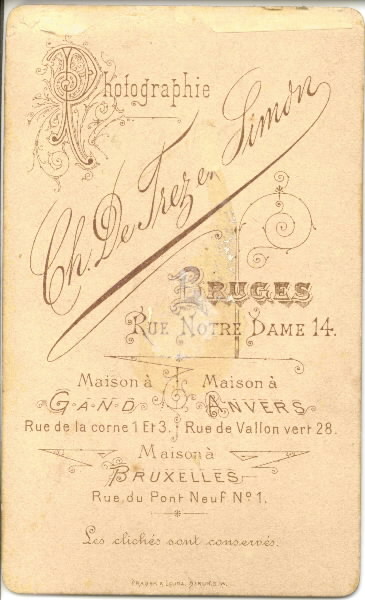 Photographie
Ch. De Trez en Simon
BRUGES
RUE NOTRE DAME 14.
Maison à
GAND
Rue de la corne 1 Et 3.
Maison à
ANVERS
Rue de Vallon vert 28.
Maison à
BRUXELLES
Rue du Pont Neuf Nº 1.
Les clichés sont conservés.